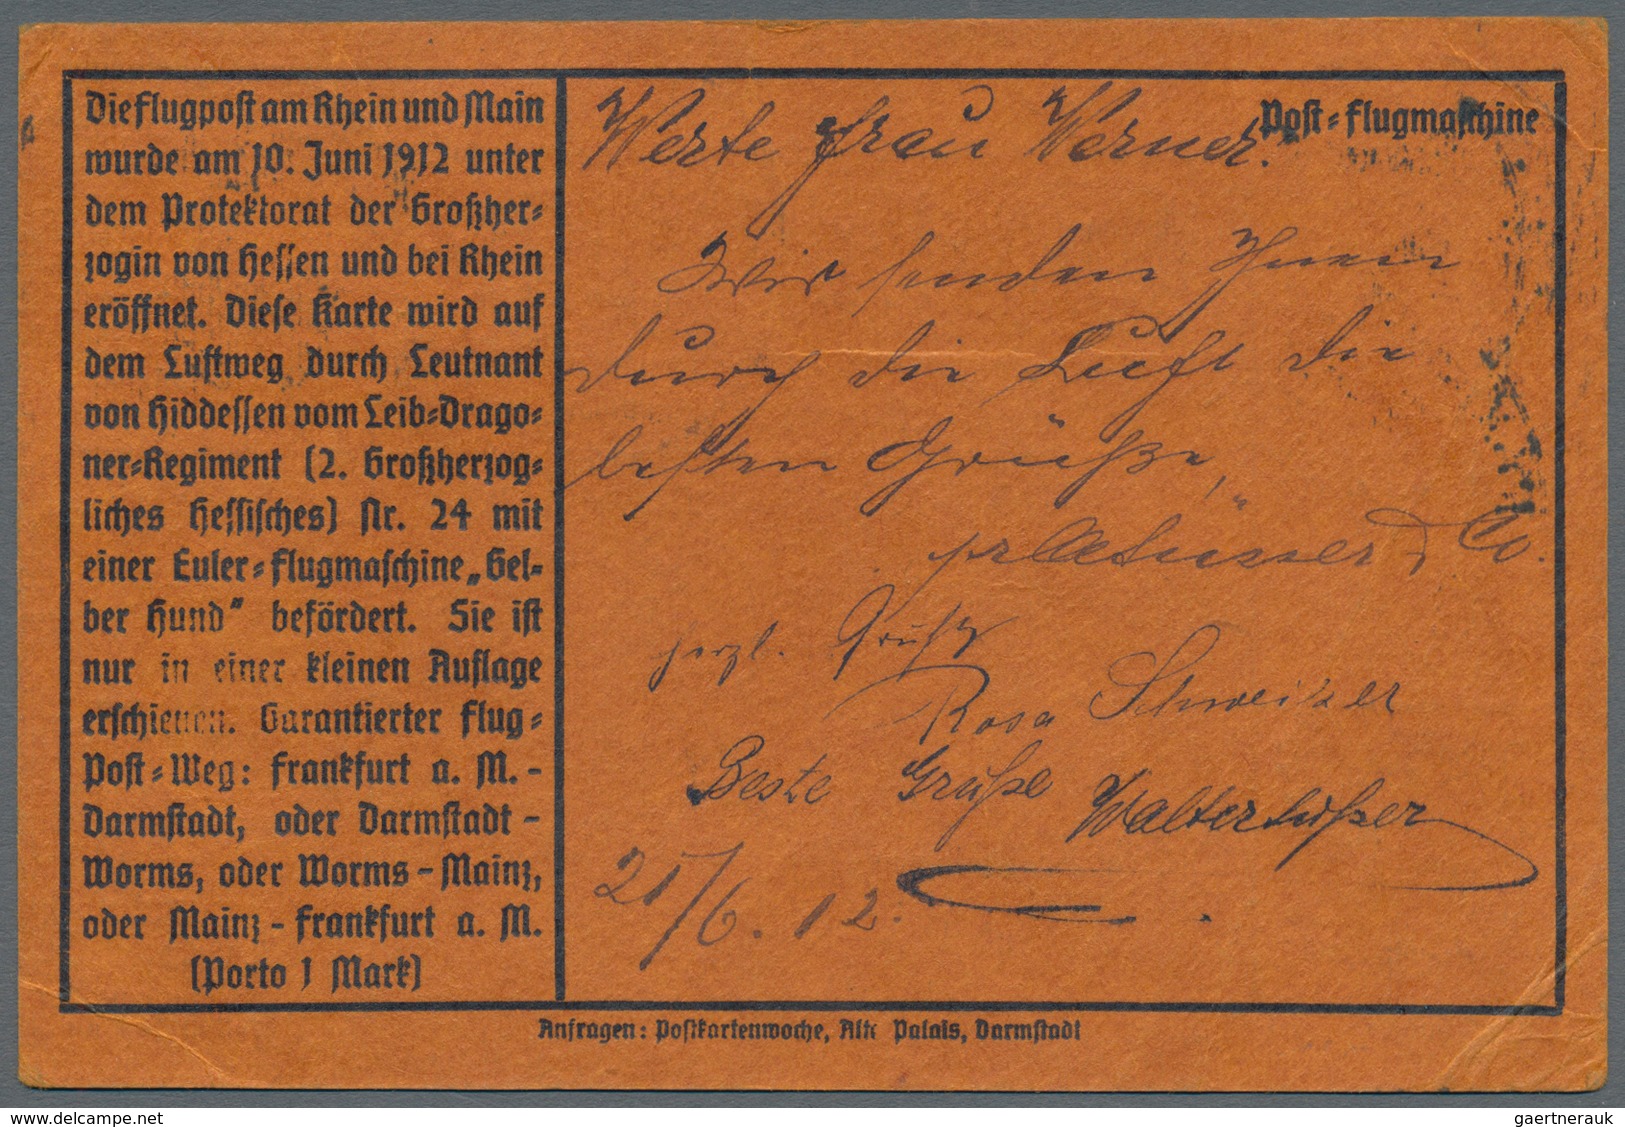 Die Flugpost am Rhein und Main
wurde am 10. Juni 1912 unter
dem Protektorat der Großher-
zogin von Hessen und bei Rhein
eröffnet. Diese Karte wird auf
dem Luftweg durch Leutnant
von Hiddessen vom Leib-Drago-
ner-Regiment (2. Großherzog-
liches Hessisches) Nr. 24 mit
einer Euler-Flugmaschine „Gel-
ber Hund" befördert. Sie ist
nur in einer kleinen Auflage
erschienen. Garantierter Flug-
Post-Weg: Frankfurt a. M. -
Darmstadt, oder Darmstadt -
Worms, oder Worms - Mainz,
oder Mainz - Frankfurt a. M.
(Porto 1 Mark)
Post-Flugmaschine
Werte Frau Werner.
Wir senden Ihnen
durch die Luft die
besten Grüße,
& Co.
herzl. Grüße
Rosa Schweizer
Beste Grüße Walter
21/6.12.
Anfragen: Postkartenwoche, Alte Palais, Darmstadt
gaertnerauk // delcampe.net